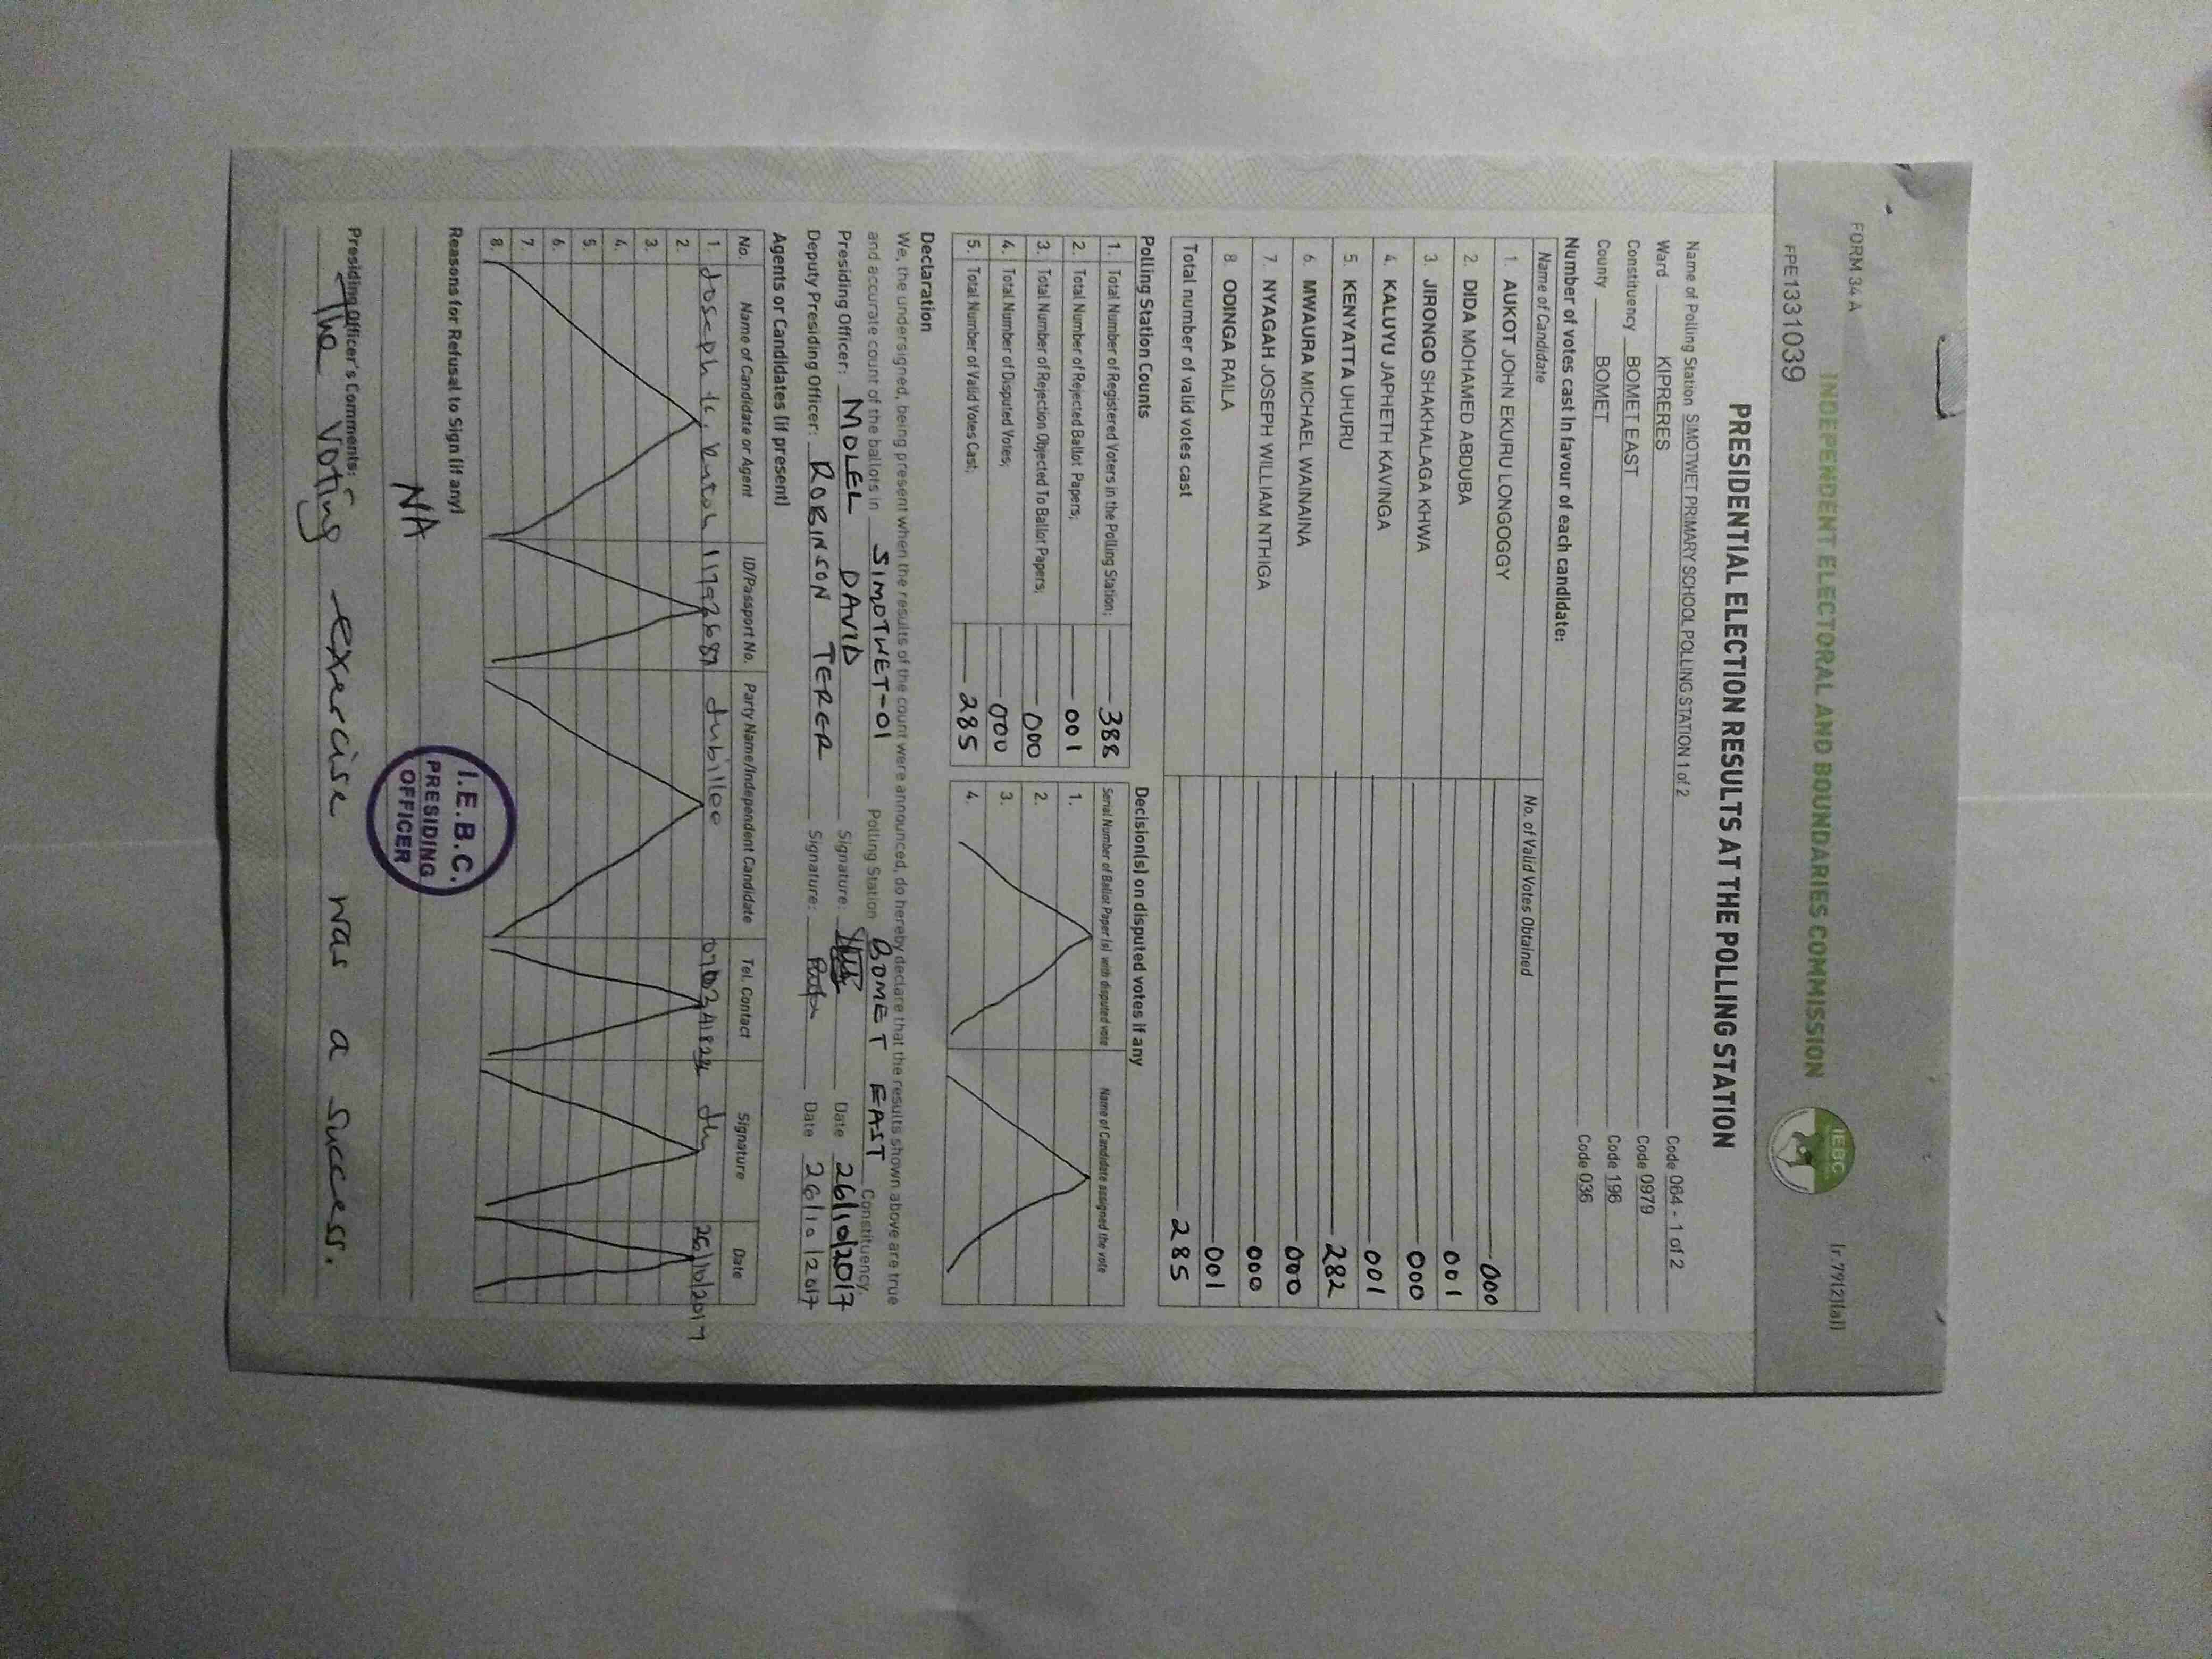 FORM 34 A
[r.79(2)(a)]
INDEPENDENT ELECTORAL AND BOUNDARIES COMMISSION
IEBC
FPE1331039
PRESIDENTIAL ELECTION RESULTS AT THE POLLING STATION
Name of Polling Station SIMOTWET PRIMARY SCHOOL POLLING STATION 1 of 2 Code 064 - 1 of 2
Ward KIPRERES Code 0979
Constituency BOMET EAST Code 196
County BOMET Code 036
Number of votes cast in favour of each candidate:
Name of Candidate No. of Valid Votes Obtained
1. AUKOT JOHN EKURU LONGOGGY 000
2. DIDA MOHAMED ABDUBA 001
3. JIRONGO SHAKHALAGA KHWA 000
4. KALUYU JAPHETH KAVINGA 001
5. KENYATTA UHURU 282
6. MWAURA MICHAEL WAINAINA 000
7. NYAGAH JOSEPH WILLIAM NTHIGA 000
8. ODINGA RAILA 001
Total number of valid votes cast 285
Polling Station Counts Decision(s) on disputed votes if any
1. Total Number of Registered Voters in the Polling Station; 388 Serial Number of Ballot Paper (s) with disputed vote Name of Candidate assigned the vote
2. Total Number of Rejected Ballot Papers; 001 1.
3. Total Number of Rejection Objected To Ballot Papers; 000 2.
4. Total Number of Disputed Votes; 000 3.
5. Total Number of Valid Votes Cast; 285 4.
Declaration
We, the undersigned, being present when the results of the count were announced, do hereby declare that the results shown above are true
and accurate count of the ballots in SIMOTWET-01 Polling Station BOMET EAST Constituency.
Presiding Officer: MOLEL DAVID Signature: Date 26/10/2017
Deputy Presiding Officer: ROBINSON TERER Signature: Date 26/10/2017
Agents or Candidates (if present)
No. Name of Candidate or Agent ID/Passport No. Party Name/Independent Candidate Tel. Contact Signature Date
1. Joseph K. Jubillee 26/10/2017
2.
3.
4.
5.
6.
7.
8.
Reasons for Refusal to Sign (if any)
NA
I.E.B.C.
PRESIDING
OFFICER
Presiding Officer's Comments:
The voting exercise was a success.